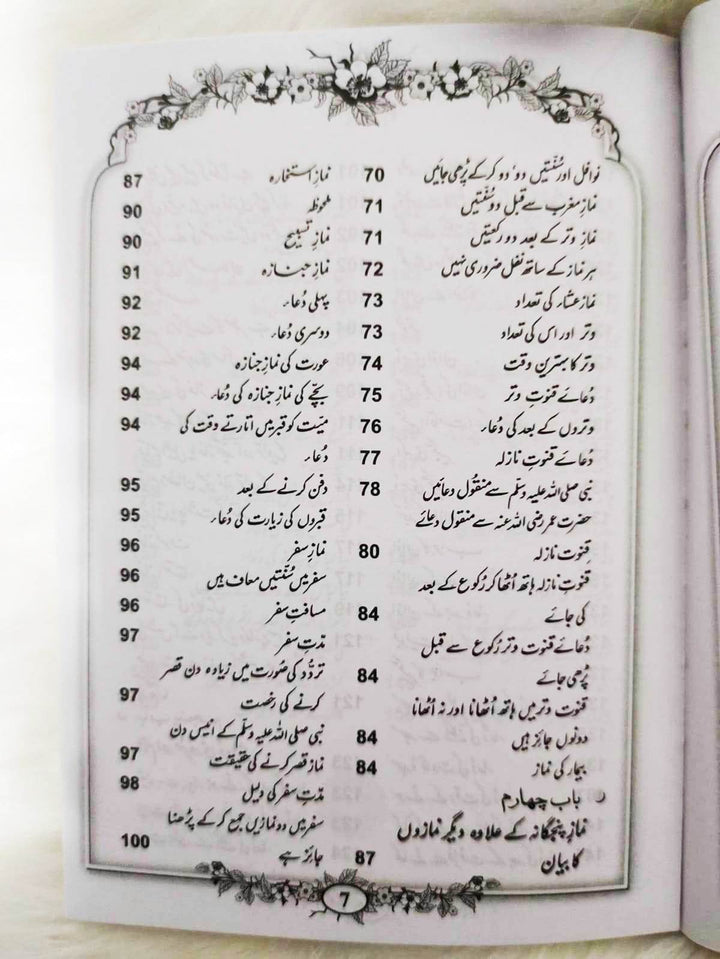 نوافل اور سُنّتیں دو، دو کر کے پڑھی جائیں 70
نمازِ مغرب سے قبل دو سُنّتیں 71
نمازِ وتر کے بعد دو رکعتیں 71
ہر نماز کے ساتھ نفل ضروری نہیں 72
نمازِ عشاء کی تعداد 73
وتر اور اس کی تعداد 73
وتر کا بہترین وقت 74
دُعائے قنوتِ وتر 75
وتروں کے بعد کی دُعاء 76
دُعائے قنوتِ نازلہ 77
نبی صلی اللہ علیہ وسلّم سے منقُول دعائیں 78
حضرت عمر رضی اللہ عنہ سے منقول دعائے
قنوت نازلہ 80
قنوتِ نازلہ ہاتھ اُٹھا کر رُکوع کے بعد
کی جائے 84
دُعائے قنوت وتر رُکوع سے قبل
پڑھی جائے 84
قنوت وتر میں ہاتھ اُٹھانا اور نہ اُٹھانا
دونوں جائز ہیں 84
بیمار کی نماز 84
باب چہارم
نمازِ پنجگانہ کے علاوہ دیگر نمازوں
کا بیان 87
نمازِ استخارہ 87
ملحوظہ 90
نمازِ تسبیح 90
نمازِ جنازہ 91
پہلی دُعاء 92
دوسری دُعاء 92
عورت کی نمازِ جنازہ 94
بچّے کی نمازِ جنازہ کی دُعاء 94
میّت کو قبر میں اتارتے وقت کی 94
دُعاء
دفن کرنے کے بعد 95
قبروں کی زیارت کی دُعاء 95
نمازِ سفر 96
سفر میں سُنّتیں معاف ہیں 96
مسافتِ سفر 96
مدّتِ سفر 97
تردّد کی صُورت میں زیادہ دن قصر
کرنے کی رخصت 97
نبی صلی اللہ علیہ وسلّم کے انیس دن
نماز قصر کرنے کی حقیقت 97
مدّتِ سفر کی دلیل 98
سفر میں دو نمازیں جمع کر کے پڑھنا
جائز ہے 100
7